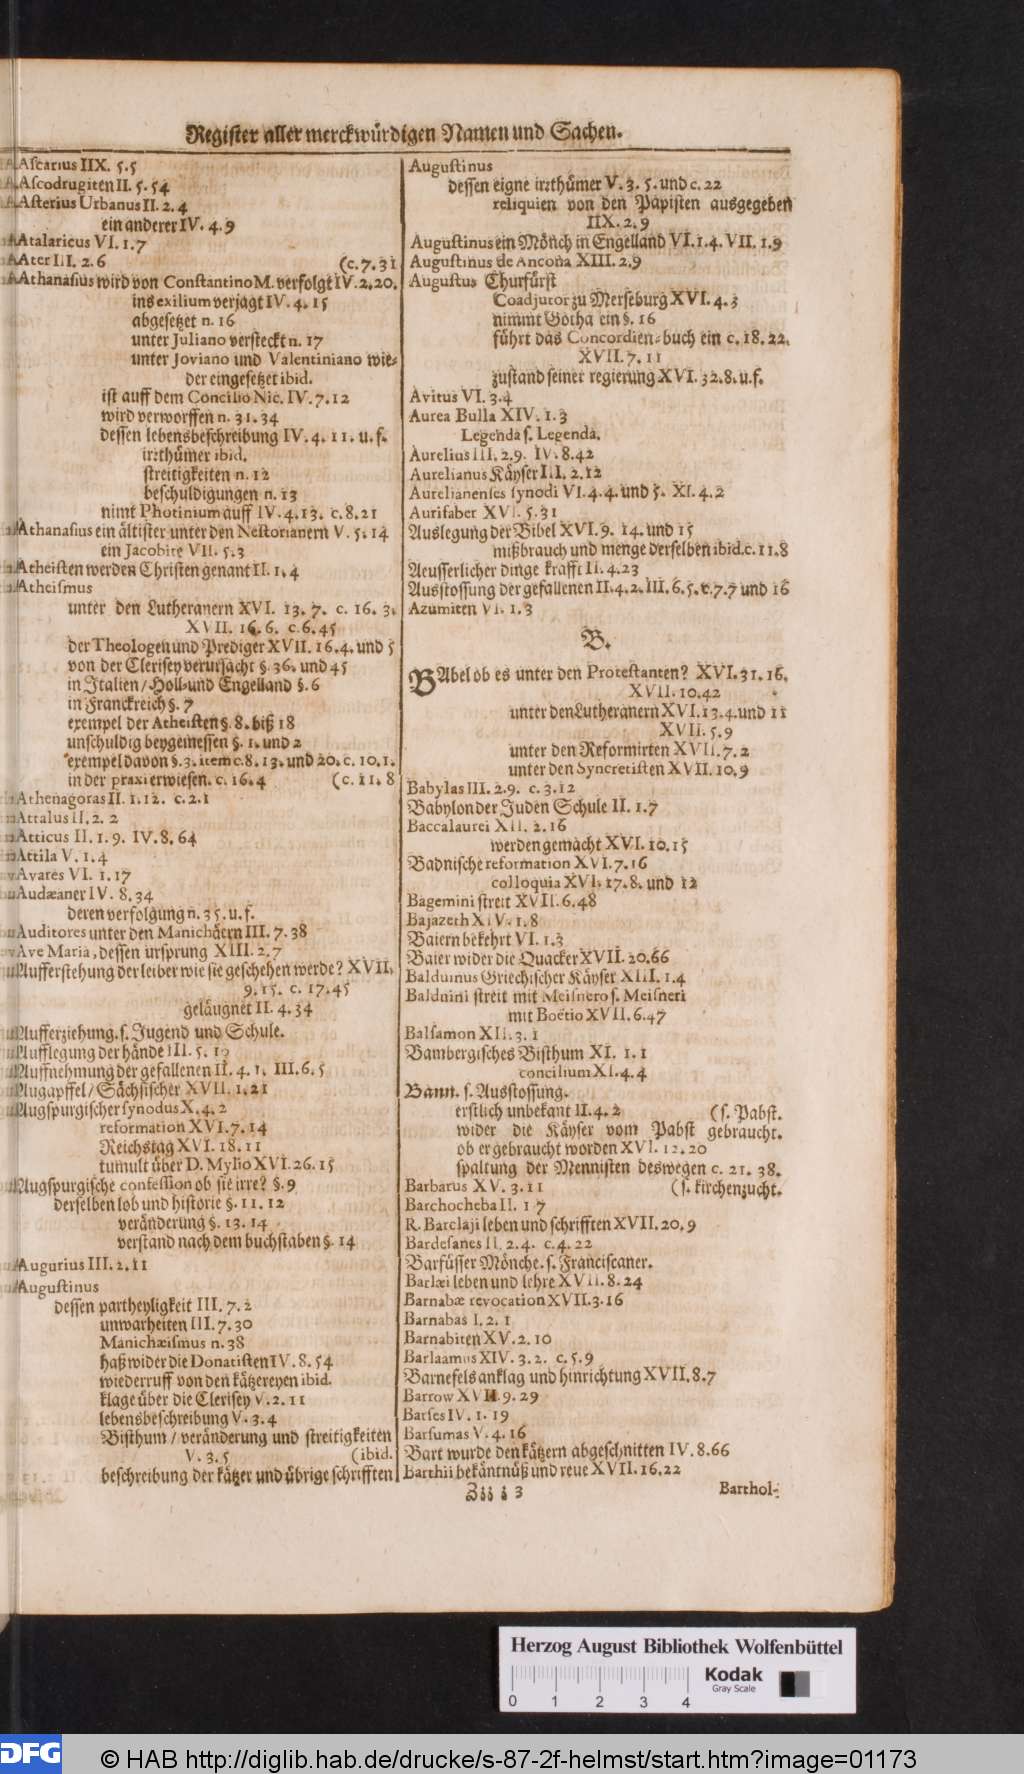 Register aller merckwürdigen Namen und Sachen.
Ascarius IIX. 5.5
Ascodrugiten II. 5.54
Asterius Urbanus II. 2.4
ein anderer IV. 4.9
Atalaricus VI. 1.7
Ater III. 2.6 (c.7.31
Athanasius wird von Constantino M. verfolgt IV.2.20.
ins exilium verjagt IV. 4.15
abgesetzet n. 16
unter Juliano versteckt n. 17
unter Joviano und Valentiniano wie-
der eingesetzet ibid.
ist auff dem Concilio Nic. IV. 7.12
wird verworffen n. 31. 34
dessen lebensbeschreibung IV. 4. 11. u. f.
irrthümer ibid.
streitigkeiten n. 12
beschuldigungen n. 13
nimt Photinium auff IV. 4.13. c. 8.21
Athanasius ein ältister unter den Nestorianern V. 5. 14
ein Jacobite VII. 5.3
Atheisten werden Christen genant II. 1.4
Atheismus
unter den Lutheranern XVI. 13. 7. c. 16. 3.
XVII. 16.6. c.6.45
der Theologen und Prediger XVII. 16.4. und 5
von der Clerisey verursacht §. 36. und 45
in Italien/Holl-und Engelland §. 6
in Franckreich §. 7
exempel der Atheisten §. 8. biß 18
unschuldig beygemessen §. 1. und 2
exempel davon §. 3. item c. 8. 13. und 20. c. 10.1.
in der praxi erwiesen. c. 16.4 (c. 11. 8
Athenagoras II. 1.12. c. 2.1
Attalus II. 2. 2
Atticus II. 1. 9. IV. 8. 64
Attila V. 1. 4
Avares VI. 1.17
Audæaner IV. 8.34
deren verfolgung n. 35. u. f.
Auditores unter den Manichäern III. 7. 38
Ave Maria, dessen ursprung XIII. 2.7
Aufferstehung der leiber wie sie geschehen werde? XVII.
9.15. c. 17.45
geläugnet II. 4.34
Aufferziehung. s. Jugend und Schule.
Aufflegung der hände III. 5.
Auffnehmung der gefallenen II. 4. 1. III. 6.5
Augapffel/Sächsischer XVII. 1.21
Augspurgischer synodus X. 4. 2
reformation XVI. 7. 14
Reichstag XVI. 18. 11
tumult über D. Mylio XVI. 26.15
Augspurgische confession ob sie irre? §. 9
derselben lob und historie §. 11. 12
veränderung §. 13. 14
verstand nach dem buchstaben §. 14
Augurius III. 2. 11
Augustinus
dessen partheyligkeit III. 7. 2
unwarheiten III. 7. 30
Manichæismus n. 38
haß wider die Donatisten IV. 8. 54
wiederruff von den kätzereyen ibid.
klage über die Clerisey V. 2. 11
lebensbeschreibung V. 3. 4
Bisthum/veränderung und streitigkeiten
V. 3. 5 (ibid.
beschreibung der kätzer und übrige schrifften
Augustinus
dessen eigne irrthümer V. 3. 5. und c. 22
reliquien von den Papisten ausgegeben
IIX. 2. 9
Augustinus ein Mönch in Engelland VI. 1.4. VII. 1.9
Augustinus de Ancona XIII. 2.9
Augustus Churfürst
Coadjutor zu Merseburg XVI. 4.3
nimmt Gotha ein §. 16
führt das Concordien-buch ein c. 18. 22.
XVII. 7. 11
zustand seiner regierung XVI. 32.8. u.f.
Avitus VI. 3.4
Aurea Bulla XIV. 1. 3
Legenda s. Legenda.
Aurelius III. 2.9. IV. 8.42
Aurelianus Käyser III. 2.12
Aurelianenses synodi VI. 4.4. und 5. XI. 4.2
Aurifaber XVI. 5.31
Auslegung der Bibel XVI. 9. 14. und 15
mißbrauch und menge derselben ibid. c. 11.8
Aeusserlicher dinge krafft II. 4. 23
Ausstossung der gefallenen II.4.2. III. 6.5. c.7.7 und 16
Azumiten VI. 1.3
B.
BAbel ob es unter den Protestanten? XVI. 31. 16.
XVII. 10.42
unter den Lutheranern XVI. 13.4. und 11
XVII. 5.9
unter den Reformirten XVII. 7. 2
unter den Syncretisten XVII. 10.9
Babylas III. 2.9. c. 3.12
Babylon der Juden Schule II. 1.7
Baccalaurei XII. 2.16
werden gemacht XVI. 10.15
Badnische reformation XVI. 7.16
colloquia XVI. 17.8. und 12
Bagemini streit XVII. 6.48
Bajazeth XIV. 1.8
Baiern bekehrt VI. 1.3
Baier wider die Quacker XVII. 20.66
Balduinus Griechischer Käyser XIII. 1.4
Balduini streit mit Meisnero s. Meisneri
mit Boetio XVII. 6.47
Balsamon XII. 3. 1
Bambergisches Bisthum XI. 1.1
concilium XI. 4. 4
Bann. s. Ausstossung.
erstlich unbekant II. 4. 2 (s. Pabst.
wider die Käyser vom Pabst gebraucht.
ob er gebraucht worden XVI. 12.20
spaltung der Mennisten deswegen c. 21. 38.
Barbarus XV. 3. 11 (s. kirchenzucht.
Barchocheba II. 1 7
R. Barclaji leben und schrifften XVII. 20.9
Bardesanes II. 2. 4. c. 4. 22
Barfüsser Mönche. s. Franciscaner.
Barlæi leben und lehre XVII. 8. 24
Barnabæ revocation XVII. 3. 16
Barnabas I. 2. 1
Barnabiten XV. 2. 10
Barlaamus XIV. 3. 2. c. 5. 9
Barnefels anklag und hinrichtung XVII. 8. 7
Barrow XVII. 9. 29
Barses IV. 1. 19
Barsumas V. 4. 16
Bart wurde den kätzern abgeschnitten IV. 8. 66
Barthii bekäntnüß und reue XVII. 16. 22
Ziii i 3 Barthol-
Herzog August Bibliothek Wolfenbüttel
0 1 2 3 4
Kodak
Gray Scale
DFG © HAB http://diglib.hab.de/drucke/s-87-2f-helmst/start.htm?image=01173